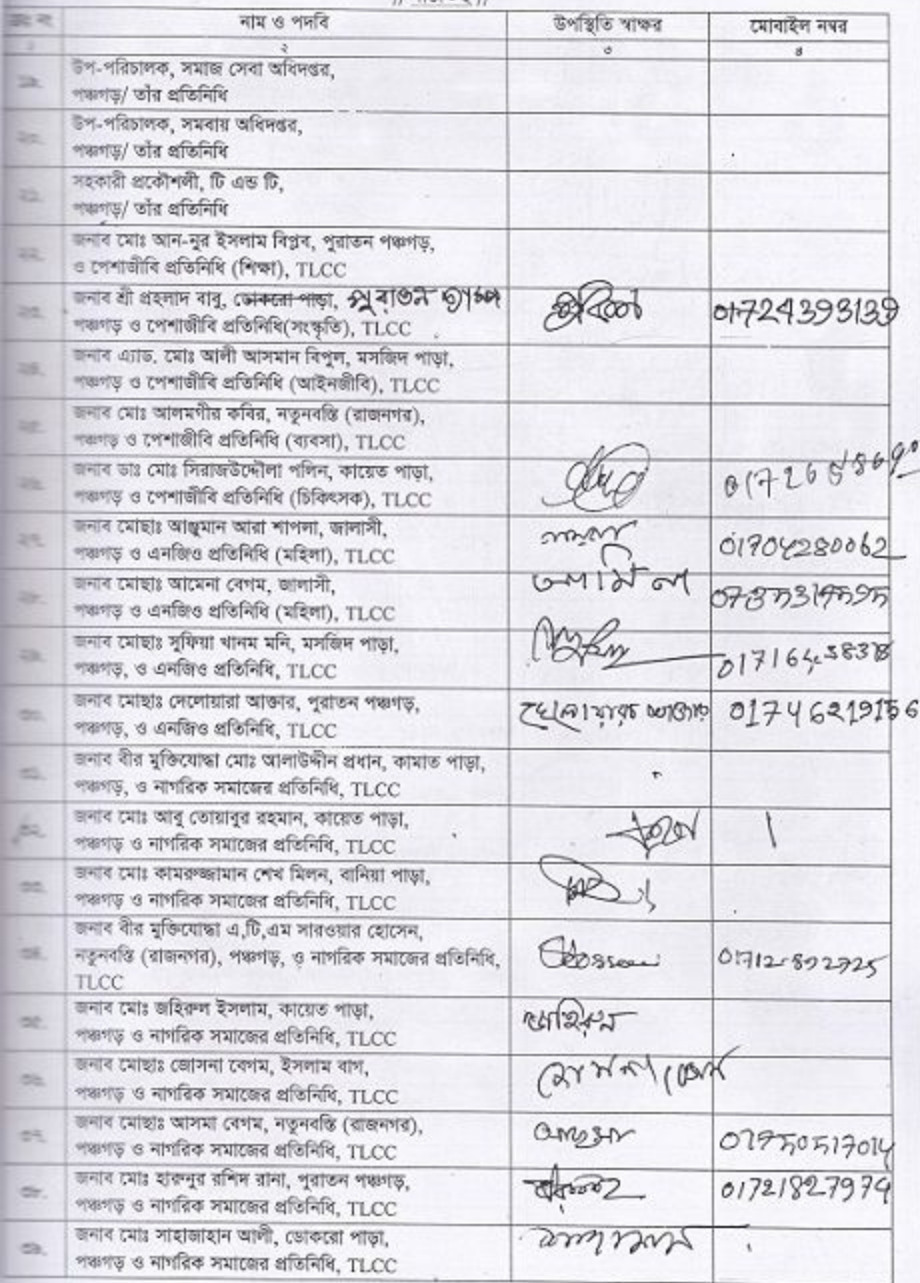 নাম ও পদবি উপস্থিতি স্বাক্ষর মোবাইল নম্বর
২ ৩ ৪
১৯. উপ-পরিচালক, সমাজ সেবা অধিদপ্তর,
পঞ্চগড়/ তাঁর প্রতিনিধি
২০. উপ-পরিচালক, সমবায় অধিদপ্তর,
পঞ্চগড়/ তাঁর প্রতিনিধি
২১. সহকারী প্রকৌশলী, টি এন্ড টি,
পঞ্চগড়/ তাঁর প্রতিনিধি
২২. জনাব মোঃ আন-নুর ইসলাম বিপ্লব, পুরাতন পঞ্চগড়,
ও পেশাজীবি প্রতিনিধি (শিক্ষা), TLCC
২৩. জনাব শ্রী প্রহলাদ বাবু, ডোকরো পাড়া, পুরাতন 01724393139
পঞ্চগড় ও পেশাজীবি প্রতিনিধি(সংস্কৃতি), TLCC
২৪. জনাব এ্যাড, মোঃ আলী আসমান বিপুল, মসজিদ পাড়া,
পঞ্চগড় ও পেশাজীবি প্রতিনিধি (আইনজীবি), TLCC
২৫. জনাব মোঃ আলমগীর কবির, নতুনবস্তি (রাজনগর),
পঞ্চগড় ও পেশাজীবি প্রতিনিধি (ব্যবসা), TLCC
২৬. জনাব ডাঃ মোঃ সিরাজউদ্দৌলা পলিন, কায়েত পাড়া,
পঞ্চগড় ও পেশাজীবি প্রতিনিধি (চিকিৎসক), TLCC
২৭. জনাব মোছাঃ আঞ্জুমান আরা শাপলা, জালাসী,
পঞ্চগড় ও এনজিও প্রতিনিধি (মহিলা), TLCC 01704280062
২৮. জনাব মোছাঃ আমেনা বেগম, জালাসী,
পঞ্চগড় ও এনজিও প্রতিনিধি (মহিলা), TLCC
২৯. জনাব মোছাঃ সুফিয়া খানম মনি, মসজিদ পাড়া,
পঞ্চগড়, ও এনজিও প্রতিনিধি, TLCC
৩০. জনাব মোছাঃ দেলোয়ারা আক্তার, পুরাতন পঞ্চগড়, দেলোয়ারা আক্তার
পঞ্চগড়, ও এনজিও প্রতিনিধি, TLCC
৩১. জনাব বীর মুক্তিযোদ্ধা মোঃ আলাউদ্দীন প্রধান, কামাত পাড়া,
পঞ্চগড়, ও নাগরিক সমাজের প্রতিনিধি, TLCC
৩২. জনাব মোঃ আবু তোয়াবুর রহমান, কায়েত পাড়া,
পঞ্চগড় ও নাগরিক সমাজের প্রতিনিধি, TLCC
৩৩. জনাব মোঃ কামরুজ্জামান শেখ মিলন, বানিয়া পাড়া,
পঞ্চগড় ও নাগরিক সমাজের প্রতিনিধি, TLCC
৩৪. জনাব বীর মুক্তিযোদ্ধা এ,টি,এম সারওয়ার হোসেন,
নতুনবস্তি (রাজনগর), পঞ্চগড়, ও নাগরিক সমাজের প্রতিনিধি,
TLCC
৩৫. জনাব মোঃ জহিরুল ইসলাম, কায়েত পাড়া, জহিরুল
পঞ্চগড় ও নাগরিক সমাজের প্রতিনিধি, TLCC
৩৬. জনাব মোছাঃ জোসনা বেগম, ইসলাম বাগ,
পঞ্চগড় ও নাগরিক সমাজের প্রতিনিধি, TLCC
৩৭. জনাব মোছাঃ আসমা বেগম, নতুনবস্তি (রাজনগর), 01750517014
পঞ্চগড় ও নাগরিক সমাজের প্রতিনিধি, TLCC
৩৮. জনাব মোঃ হারুনুর রশিদ রানা, পুরাতন পঞ্চগড়, 01721827974
পঞ্চগড় ও নাগরিক সমাজের প্রতিনিধি, TLCC
৩৯. জনাব মোঃ সাহাজাহান আলী, ডোকরো পাড়া,
পঞ্চগড় ও নাগরিক সমাজের প্রতিনিধি, TLCC